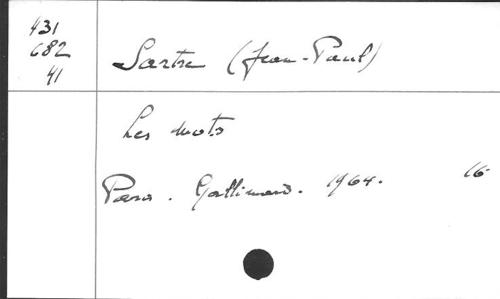 431
682
41
Sartre (Jean-Paul)
Les Mots
Paris. Gallimard. 1964. 16